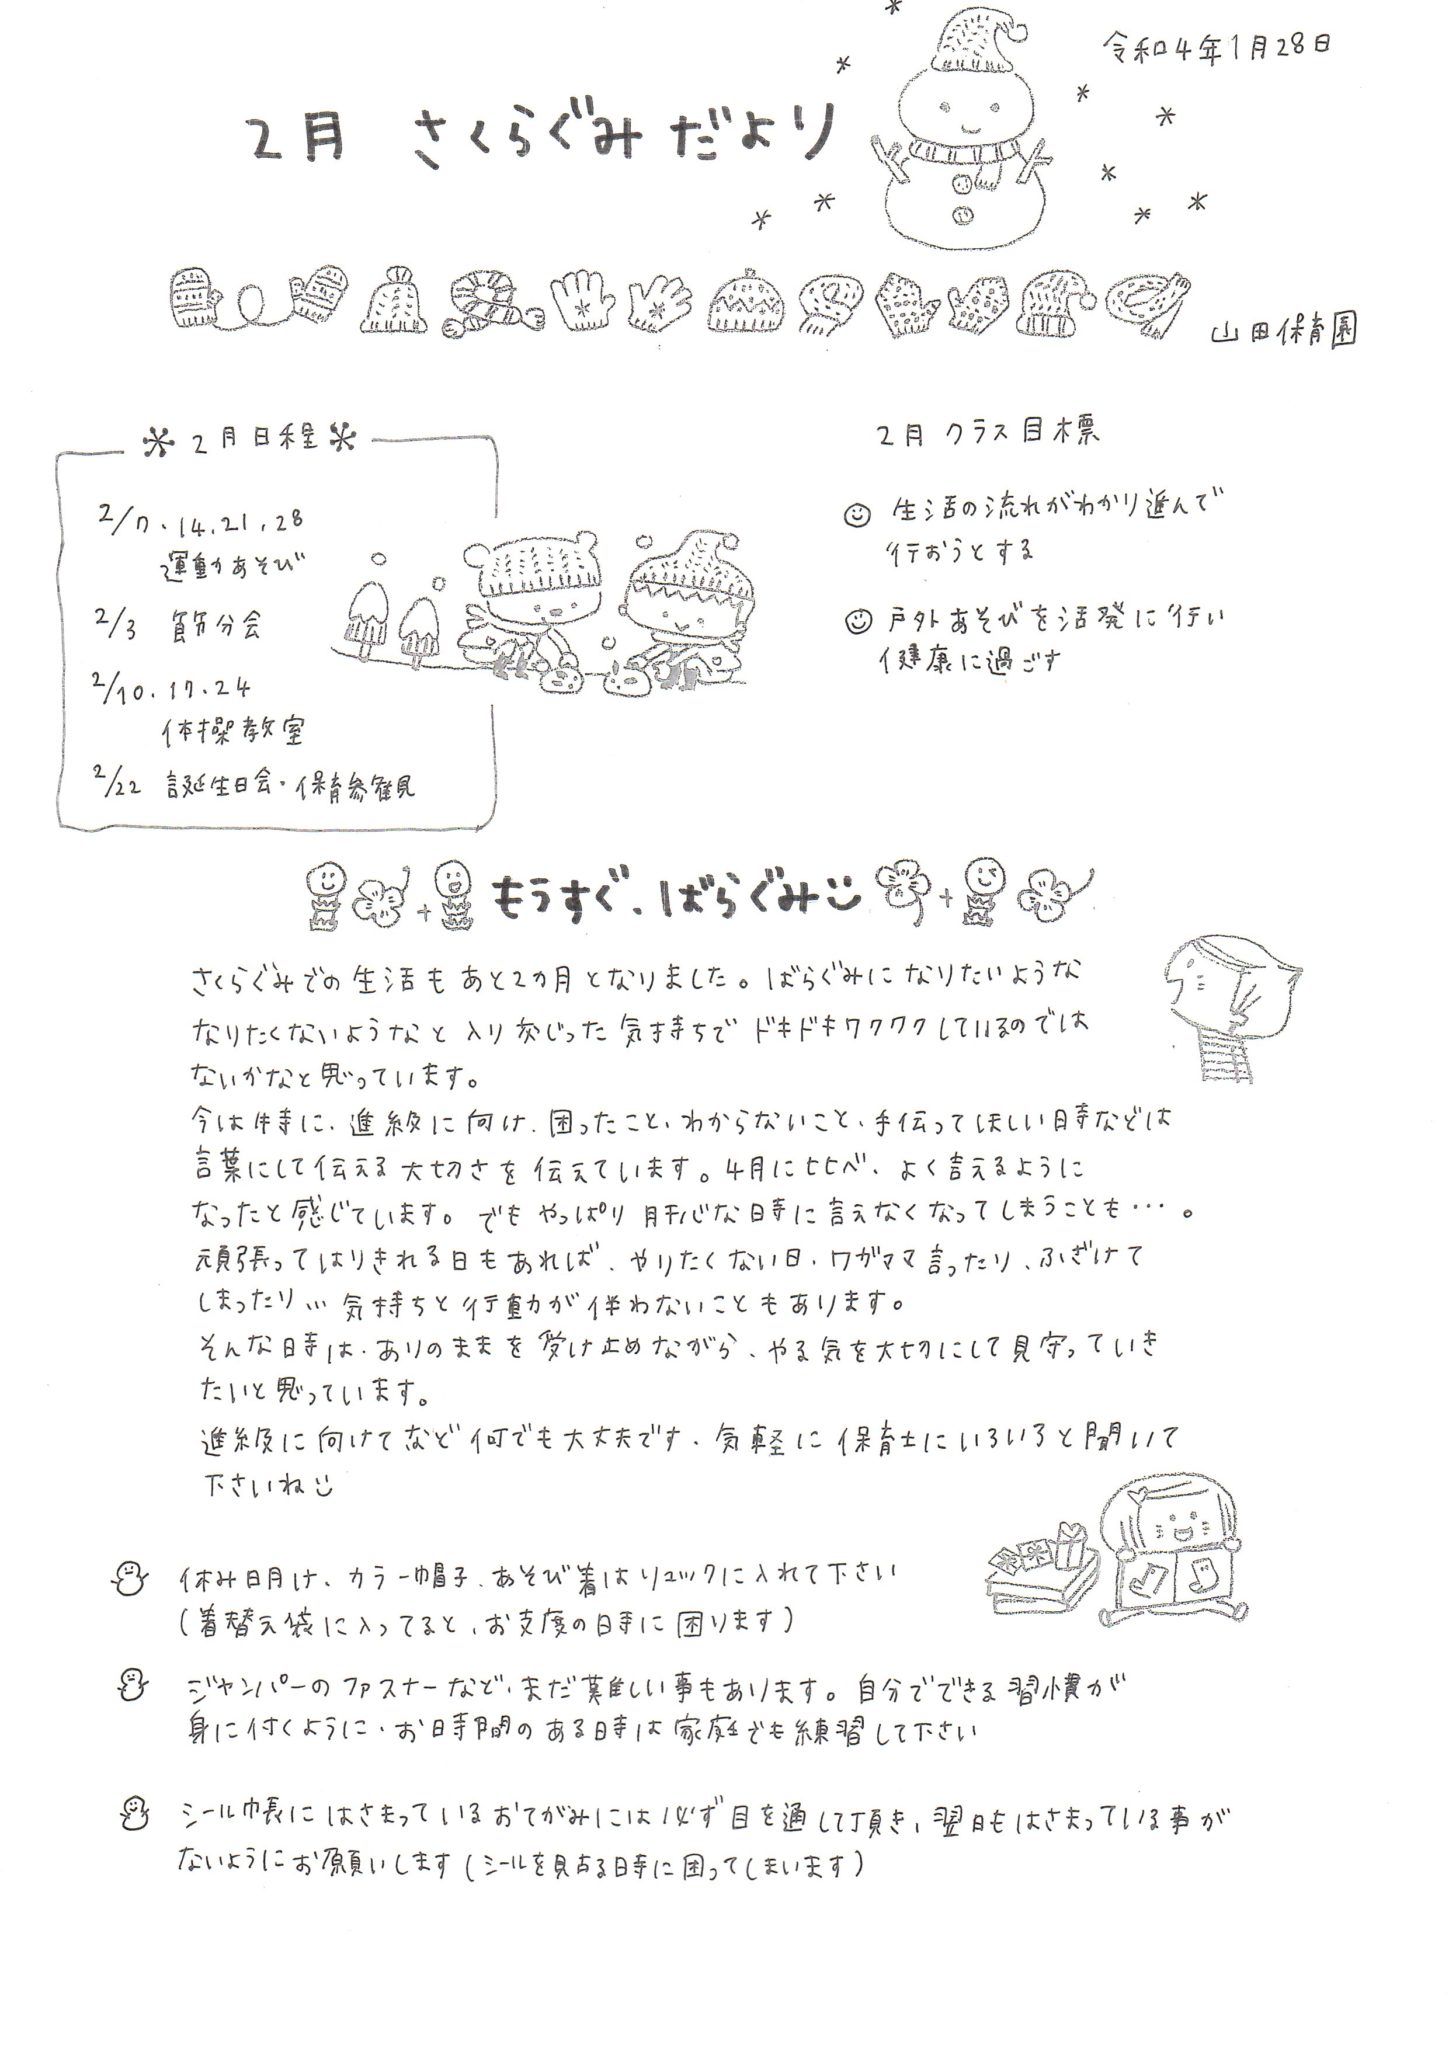 令和4年1月28日
2月 さくらぐみだより
山田保育園
2月日程
2/7.14.21.28
運動あそび
2/3 節分会
2/10.17.24
体操教室
2/22 誕生日会・保育参観
2月 クラス目標
生活の流れがわかり進んで
行おうとする
戸外あそびを活発に行い
健康に過ごす
もうすぐ、ばらぐみ
さくらぐみでの生活もあと2カ月となりました。ばらぐみになりたいような
なりたくないようなと入り交じった気持ちでドキドキワクワクしているのでは
ないかなと思っています。
今は特に、進級に向け、困ったこと、わからないこと、手伝ってほしい時などは
言葉にして伝える大切さを伝えています。4月に比べ、よく言えるように
なったと感じています。でもやっぱり肝心な時に言えなくなってしまうことも…。
頑張ってはりきれる日もあれば、やりたくない日、ワガママ言ったり、ふざけて
しまったり…気持ちと行動が伴わないこともあります。
そんな時は、ありのままを受け止めながら、やる気を大切にして見守っていき
たいと思っています。
進級に向けてなど何でも大丈夫です、気軽に保育士にいろいろと聞いて
下さいね
休み明け、カラー帽子、あそび着はリュックに入れて下さい
(着替え袋に入ってると、お支度の時に困ります)
ジャンパーのファスナーなど、まだ難しい事もあります。自分でできる習慣が
身に付くように、お時間のある時は家庭でも練習して下さい
シール帳にはさまっているおてがみには必ず目を通して頂き、翌日もはさまっている事が
ないようにお願いします(シールを貼る時に困ってしまいます)